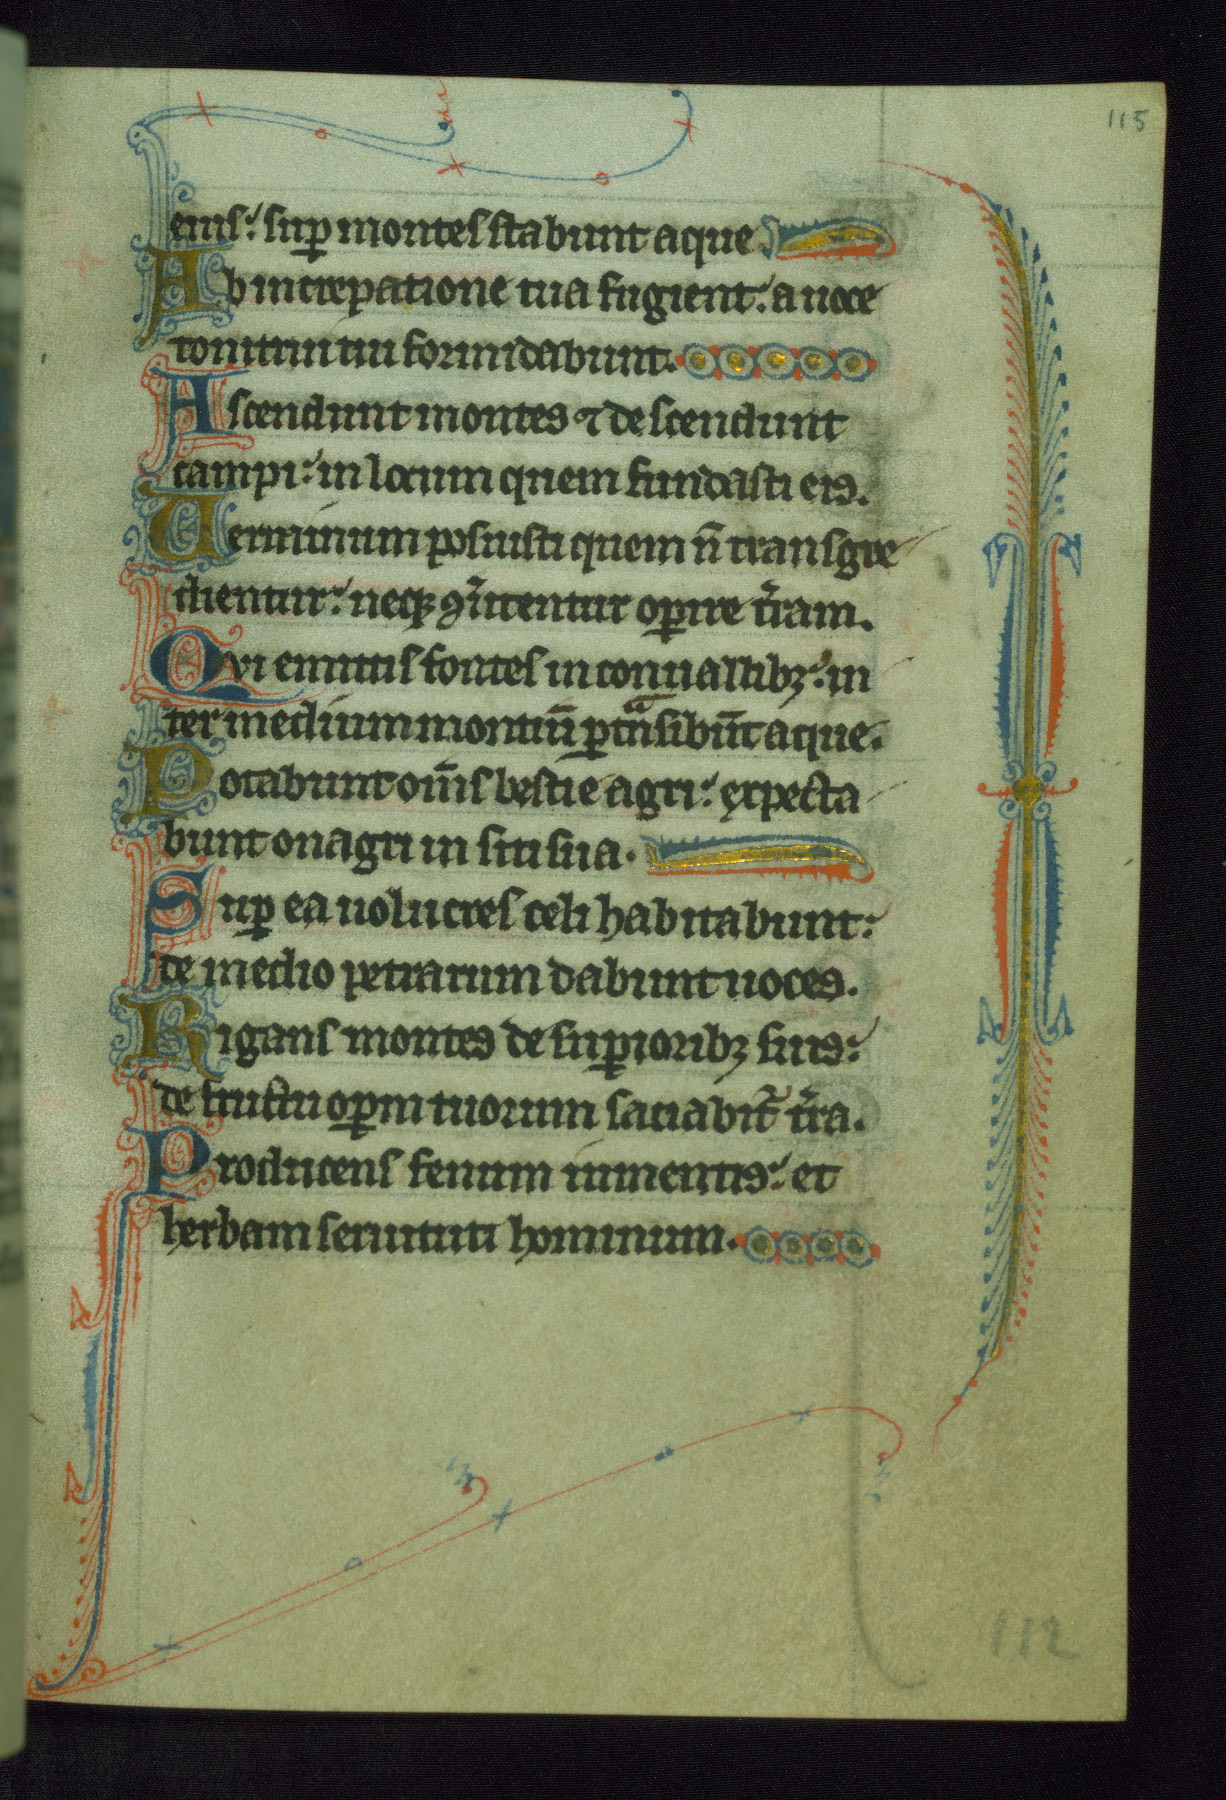 115
eius: sup̄ montes stabunt aque.
Ab increpatione tua fugient: a uoce
tonitrui tui formidabunt.
Ascendunt montes ⁊ descendunt
campi: in locum quem fundasti eis.
Terminum posuisti quem n̄ transgre
dientur: neqꝫ ꝯu̓tentur oꝑire t̓ram.
Qui emittis fontes in conuallibꝫ: in
ter medium montiū ꝑtͣnsibūt aque.
Potabunt om̄s bestie agri: expecta
bunt onagri in siti sua.
Suꝑ ea uolucres celi habitabunt:
de medio petrarum dabunt uoces.
Rigans montes de suꝑioribꝫ suis:
de fructu oꝑm tuorum saciabit᷑ t̓ra.
Producens fenum iumentis: et
herbam seruituti hominum.
112